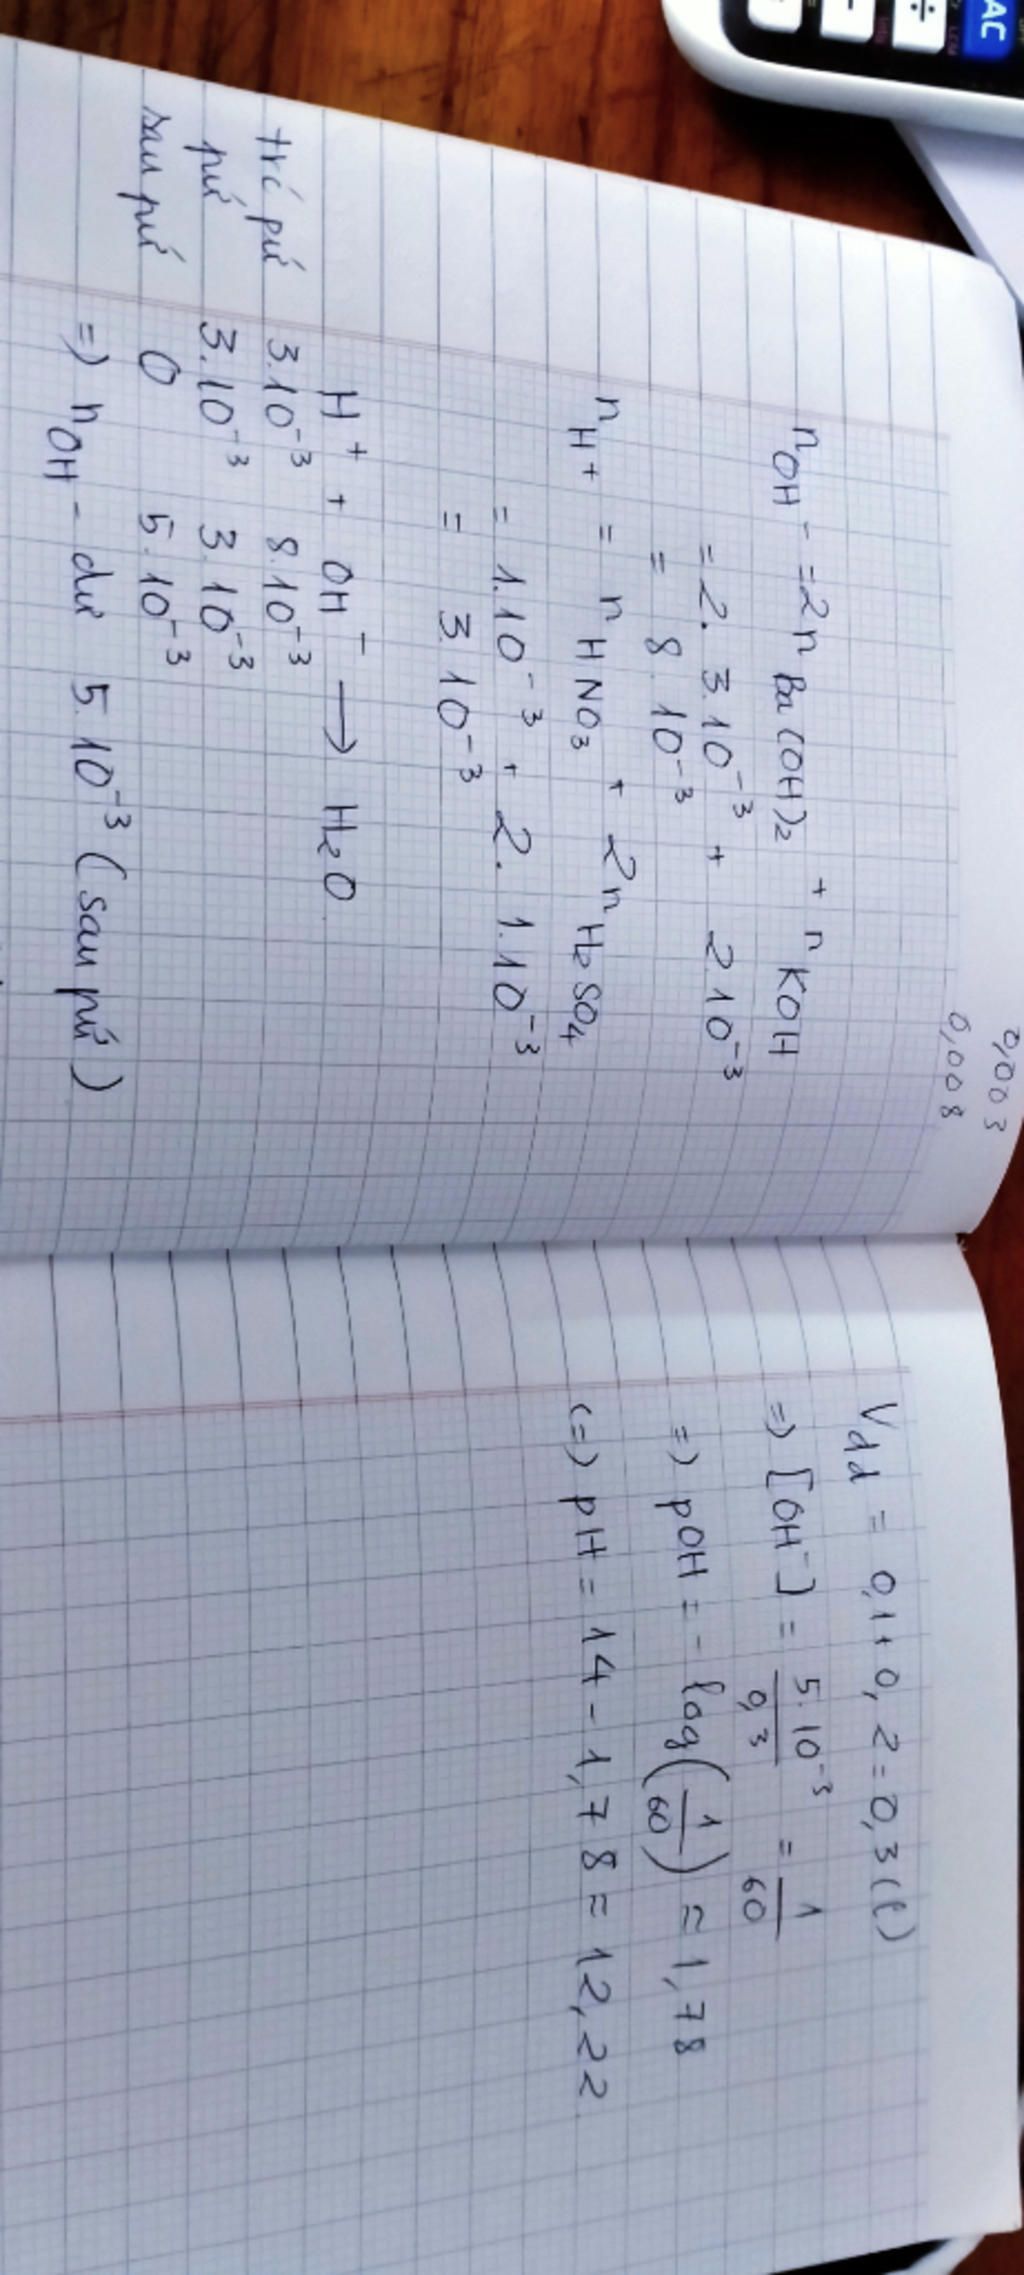 0,003
0,008
nOH- = 2nBa(OH)2 + nKOH
= 2. 3.10⁻³ + 2.10⁻³
= 8.10⁻³
nH+ = nHNO3 + 2nH2SO4
= 1.10⁻³ + 2. 1.10⁻³
= 3.10⁻³
H⁺ + OH⁻ → H2O
trc pứ 3.10⁻³ 8.10⁻³
pứ 3.10⁻³ 3.10⁻³
sau pứ 0 5.10⁻³
=) nOH- dư 5.10⁻³ (sau pứ)
Vdd = 0,1 + 0,2 = 0,3 (l)
=) [OH⁻] = 5.10⁻³/0,3 = 1/60
=) pOH = - log(1/60) ≈ 1,78
(=) pH = 14 - 1,78 ≈ 12,22
AC
÷
-